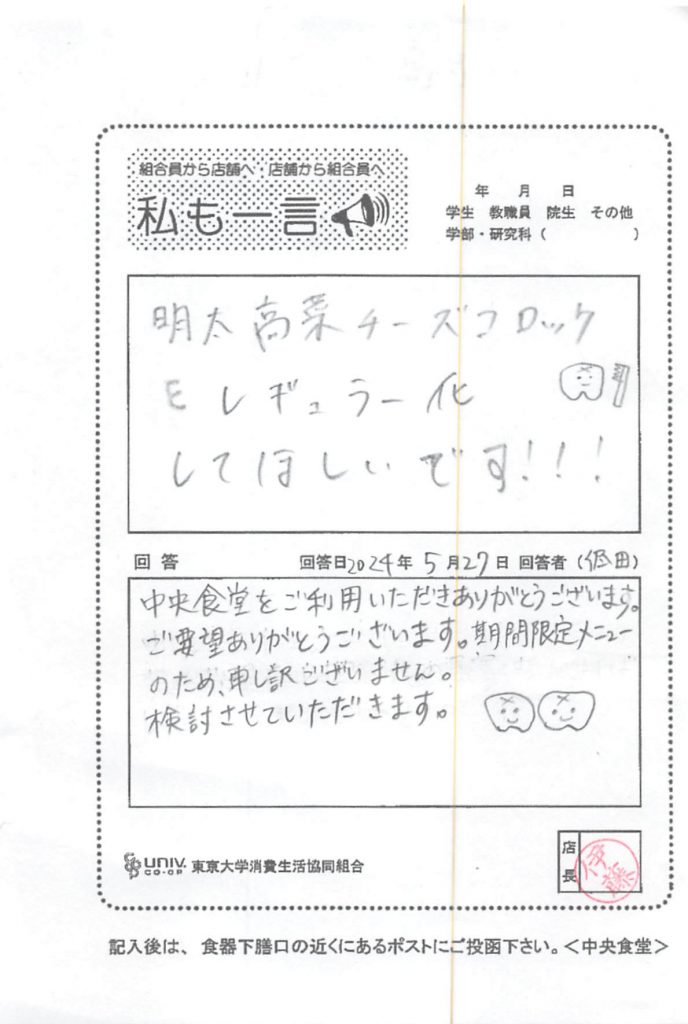 組合員から店舗へ・店舗から組合員へ
私も一言
年 月 日
学生 教職員 院生 その他
学部・研究科（ ）
明太高菜チーズコロッケ
をレギュラー化
してほしいです!!!
回答 回答日2024年5月27日 回答者（依田）
中央食堂をご利用いただきありがとうございます。
ご要望ありがとうございます。期間限定メニュー
のため、申し訳ございません。
検討させていただきます。
UNIV. CO-OP 東京大学消費生活協同組合
店長
伊藤
記入後は、食器下膳口の近くにあるポストにご投函下さい。＜中央食堂＞